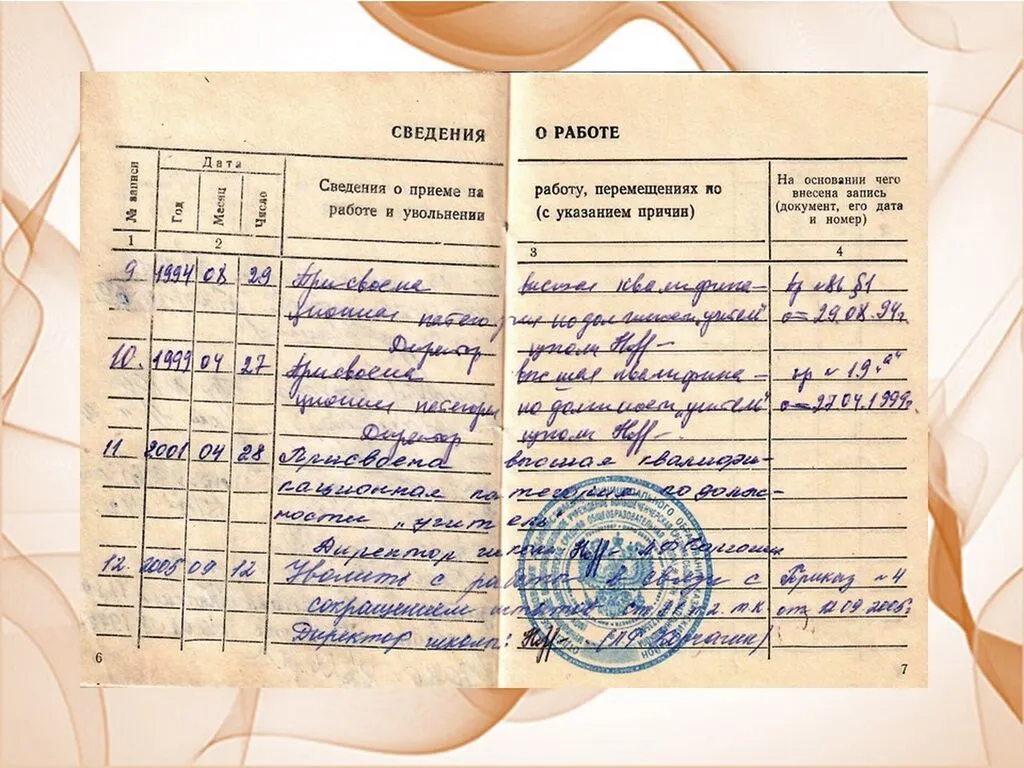 СВЕДЕНИЯ О РАБОТЕ
№ записи
Дата
Год
Месяц
Число
Сведения о приеме на работу, перемещениях по
работе и увольнении (с указанием причин)
На основании чего
внесена запись
(документ, его дата
и номер)
1 2 3 4
9 1994 08 29 Присвоена высшая квалифика- пр №86 §1
ционная категория по должности "учитель" от 29.08.94г.
Директор школы
10. 1999 04 27 Присвоена высшая квалифика- пр № 19
ционная категория по должности "учитель" от 27.04.1999г.
Директор школы
11 2001 04 28 Присвоена высшая квалифи-
кационная категория по долж-
ности "учитель"
Директор школы
12. 2005 09 12 Уволить с работы в связи с Приказ №4
сокращением штатов ст. т.к от 12.09.2005г
Директор школы:
6 7